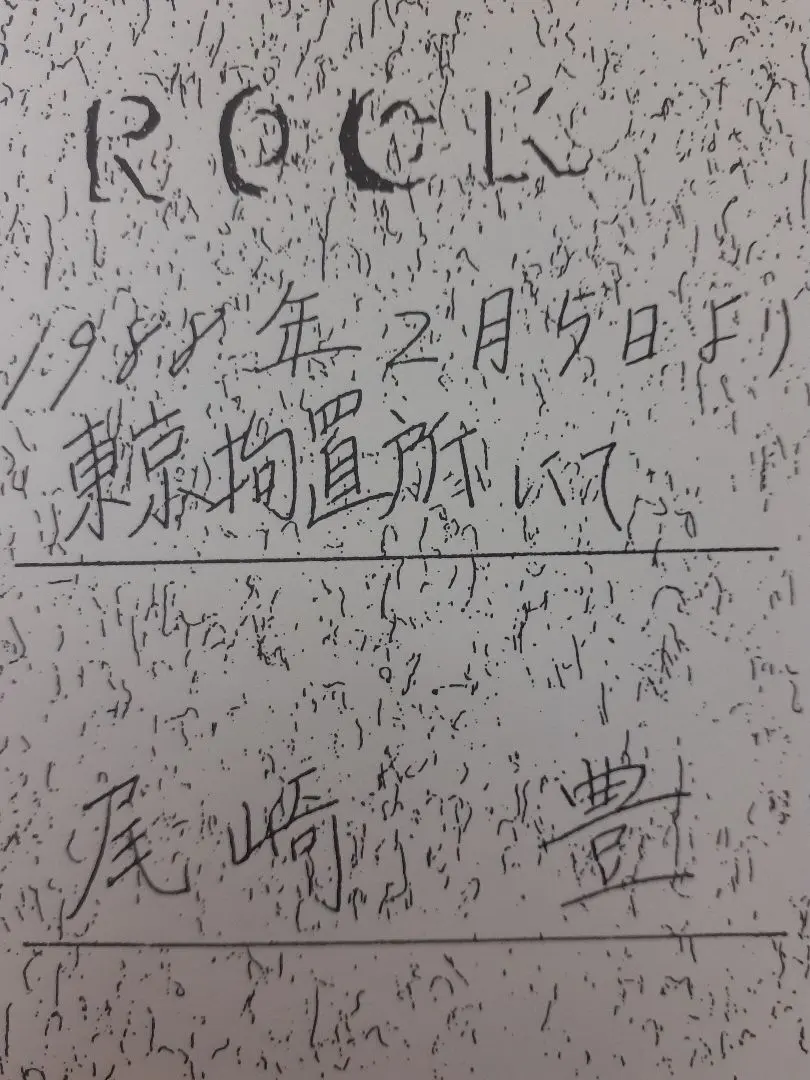 ROCK
1988年2月5日より
東京拘置所にて
尾崎 豊